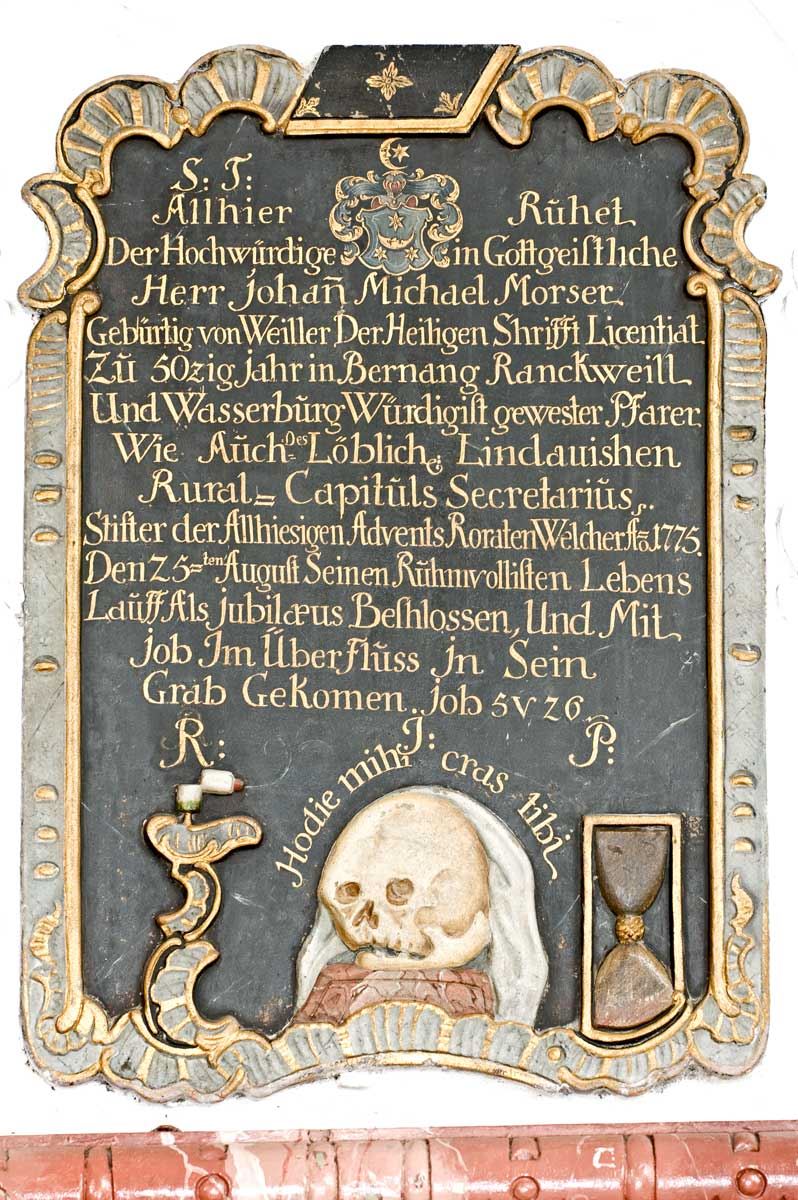 S: T:
Allhier Rŭhet
Der Hochwŭrdige in Gottgeiſtliche
Herr Johan̄ Michael Morser
Gebŭrtig von Weiller Der Heiligen Shrifft Licentiat
Zŭ 50zig jahr in Bernang Ranckweill
Und Wasserbŭrg Würdigiſt gewester Pfarer
Wie Aŭch des Löblich Lindauishen
Rural= Capitŭls Secretariŭs.
Stifter der Allhiesigen Advents Roraten Welcher Aō. 1775.
Den 25=ten Auguſt Seinen Rŭhmvolliſten Lebens
Lauff Als jubilæus Beſhlossen, Und Mit
job Im Überflŭss jn Sein
Grab Gekomen. job 5 v 26
R: I: P:
Hodie mihi cras tibi